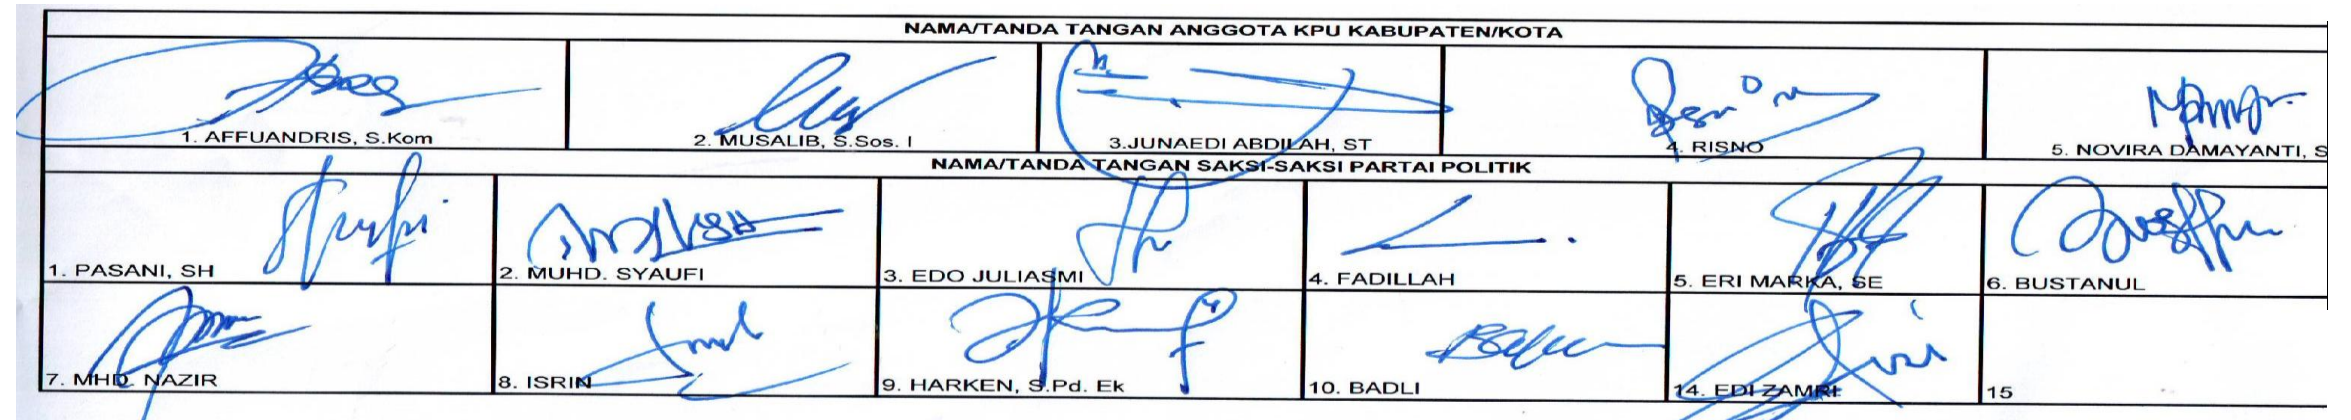 NAMA/TANDA TANGAN ANGGOTA KPU KABUPATEN/KOTA
1. AFFUANDRIS, S.Kom
2. MUSALIB, S.Sos. I
3.JUNAEDI ABDILAH, ST
4. RISNO
5. NOVIRA DAMAYANTI, S
NAMA/TANDA TANGAN SAKSI-SAKSI PARTAI POLITIK
1. PASANI, SH
2. MUHD. SYAUFI
3. EDO JULIASMI
4. FADILLAH
5. ERI MARKA, SE
6. BUSTANUL
7. MHD. NAZIR
8. ISRIN
9. HARKEN, S.Pd. Ek
10. BADLI
14. EDI ZAMRI
15